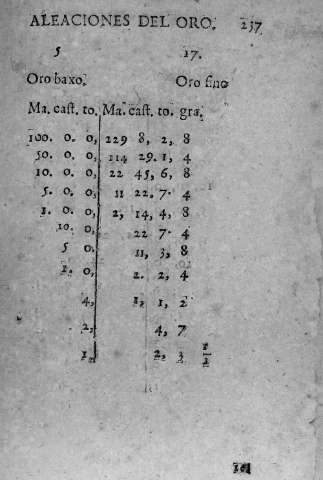 ALEACIONES DEL ORO. 237
5 17.
Oro baxo. Oro fino
Ma. cast. to. Ma. cast. to. gra.
100. 0. 0, 229 8, 2, 8
50. 0. 0, 114 29. 1, 4
10. 0. 0, 22 45, 6, 8
5. 0. 0, 11 22, 7. 4
1. 0. 0, 2, 14, 4, 8
10. 0, 22 7. 4
5 0, 11, 3, 8
1. 0, 2. 2, 4
4, 1, 1, 2
2, 4, 7
1, 2, 3 1/2